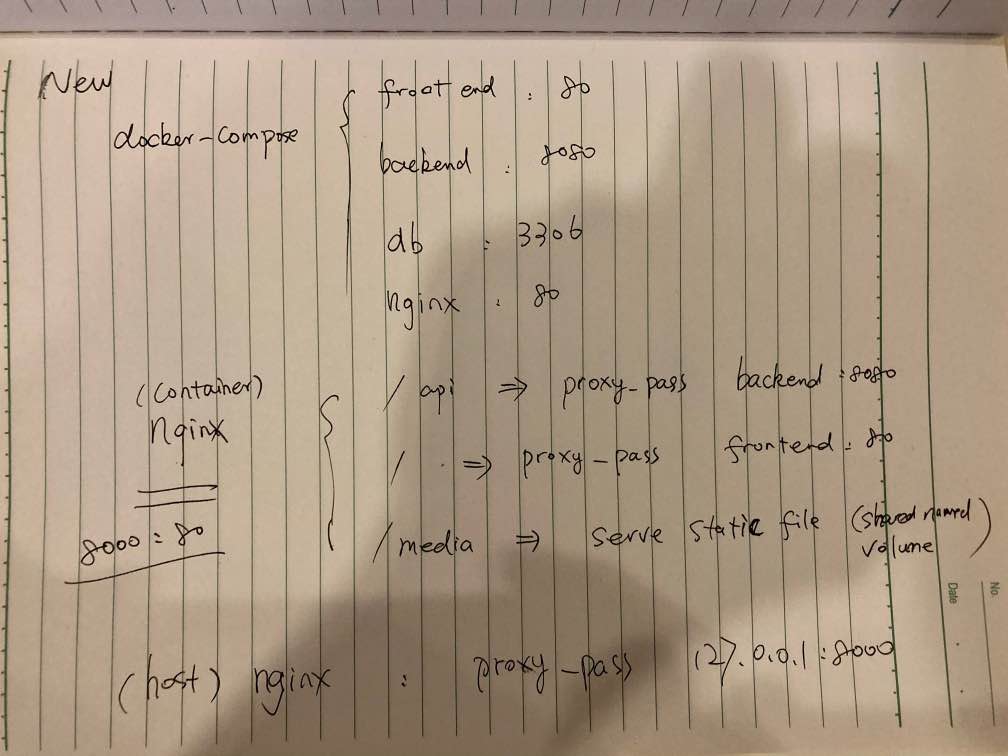 New
docker-compose
frontend : 80
backend : 8080
db : 3306
nginx : 80
(Container)
nginx
8000 : 80
/ api ⇒ proxy_pass backend : 8080
/ ⇒ proxy_pass frontend : 80
/ media ⇒ serve static file (shared named volume)
(host) nginx : proxy_pass 127.0.0.1 : 8000
No.
Date